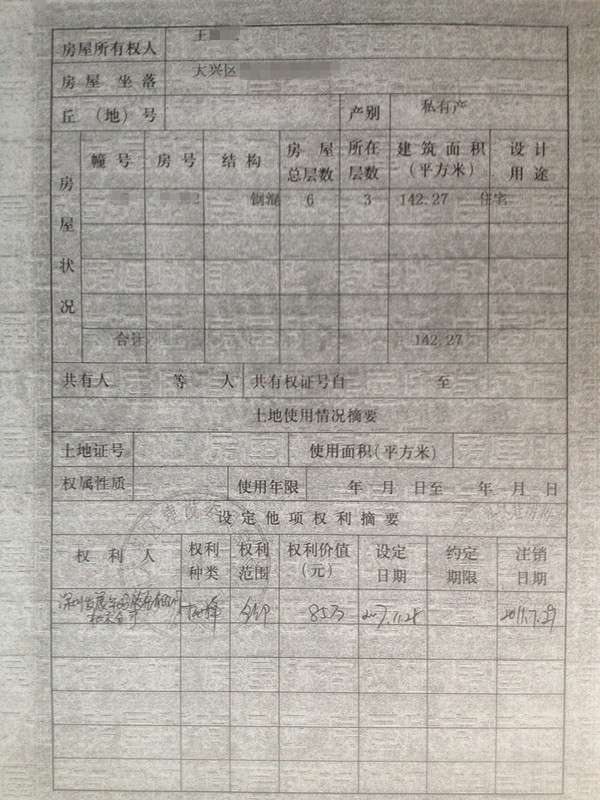 房屋所有权人 王
房屋坐落 大兴区
丘（地）号 产别 私有产
房屋状况
幢号 房号 结构 房屋总层数 所在层数 建筑面积（平方米） 设计用途
钢混 6 3 142.27 住宅
合计 142.27
共有人 等 人 共有权证号自 至
土地使用情况摘要
土地证号 使用面积（平方米）
权属性质 使用年限 年 月 日至 年 月 日
设定他项权利摘要
权利人 权利种类 权利范围 权利价值（元） 设定日期 约定期限 注销日期
抵押 全部 85万 2007.11.28 2011.7.29